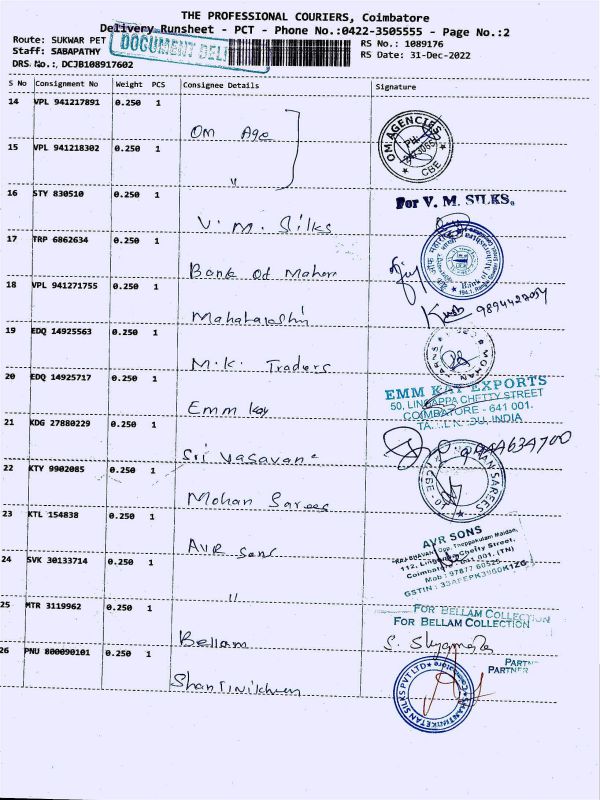 THE PROFESSIONAL COURIERS, Coimbatore
Delivery Runsheet - PCT - Phone No.:0422-3505555 - Page No.:2
Route: SUKWAR PET
DOCUMENT DELI
RS No.: 1089176
Staff: SABAPATHY
RS Date: 31-Dec-2022
DRS No.: DCJB108917602
S No Consignment No Weight PCS Consignee Details Signature
14 VPL 941217891 0.250 1
Om Age
OM AGENCIES
CBE
15 VPL 941218302 0.250 1
"
16 STY 830510 0.250 1
V. M. Silks
For V. M. SILKS.
17 TRP 6862634 0.250 1
Bank Of Mahara
18 VPL 941271755 0.250 1
Maharashi
9894427054
19 EDQ 14925563 0.250 1
M.K. Traders
MOHAN
20 EDQ 14925717 0.250 1
Emm kay
EMM KAY EXPORTS
50, LINGAPPA CHETTY STREET
COIMBATORE - 641 001.
INDIA
21 KDG 27880229 0.250 1
Sri Vasavana
9944634700
22 KTY 9902085 0.250 1
Mohan Sarees
SAREES
CBE
23 KTL 154838 0.250 1
AVR Sons
AVR SONS
Opp. Theppakulam Maidan,
Chetty Street,
001. (TN)
Mob : 97877 60525
24 SVK 30133714 0.250 1
"
25 MTR 3119962 0.250 1
Bellam
FOR BELLAM COLLECTION
FOR BELLAM COLLECTION
PARTNER
26 PNU 800090101 0.250 1
Shantinikhen
SHANTINIKETAN SILKS PVT LTD
Coimbatore